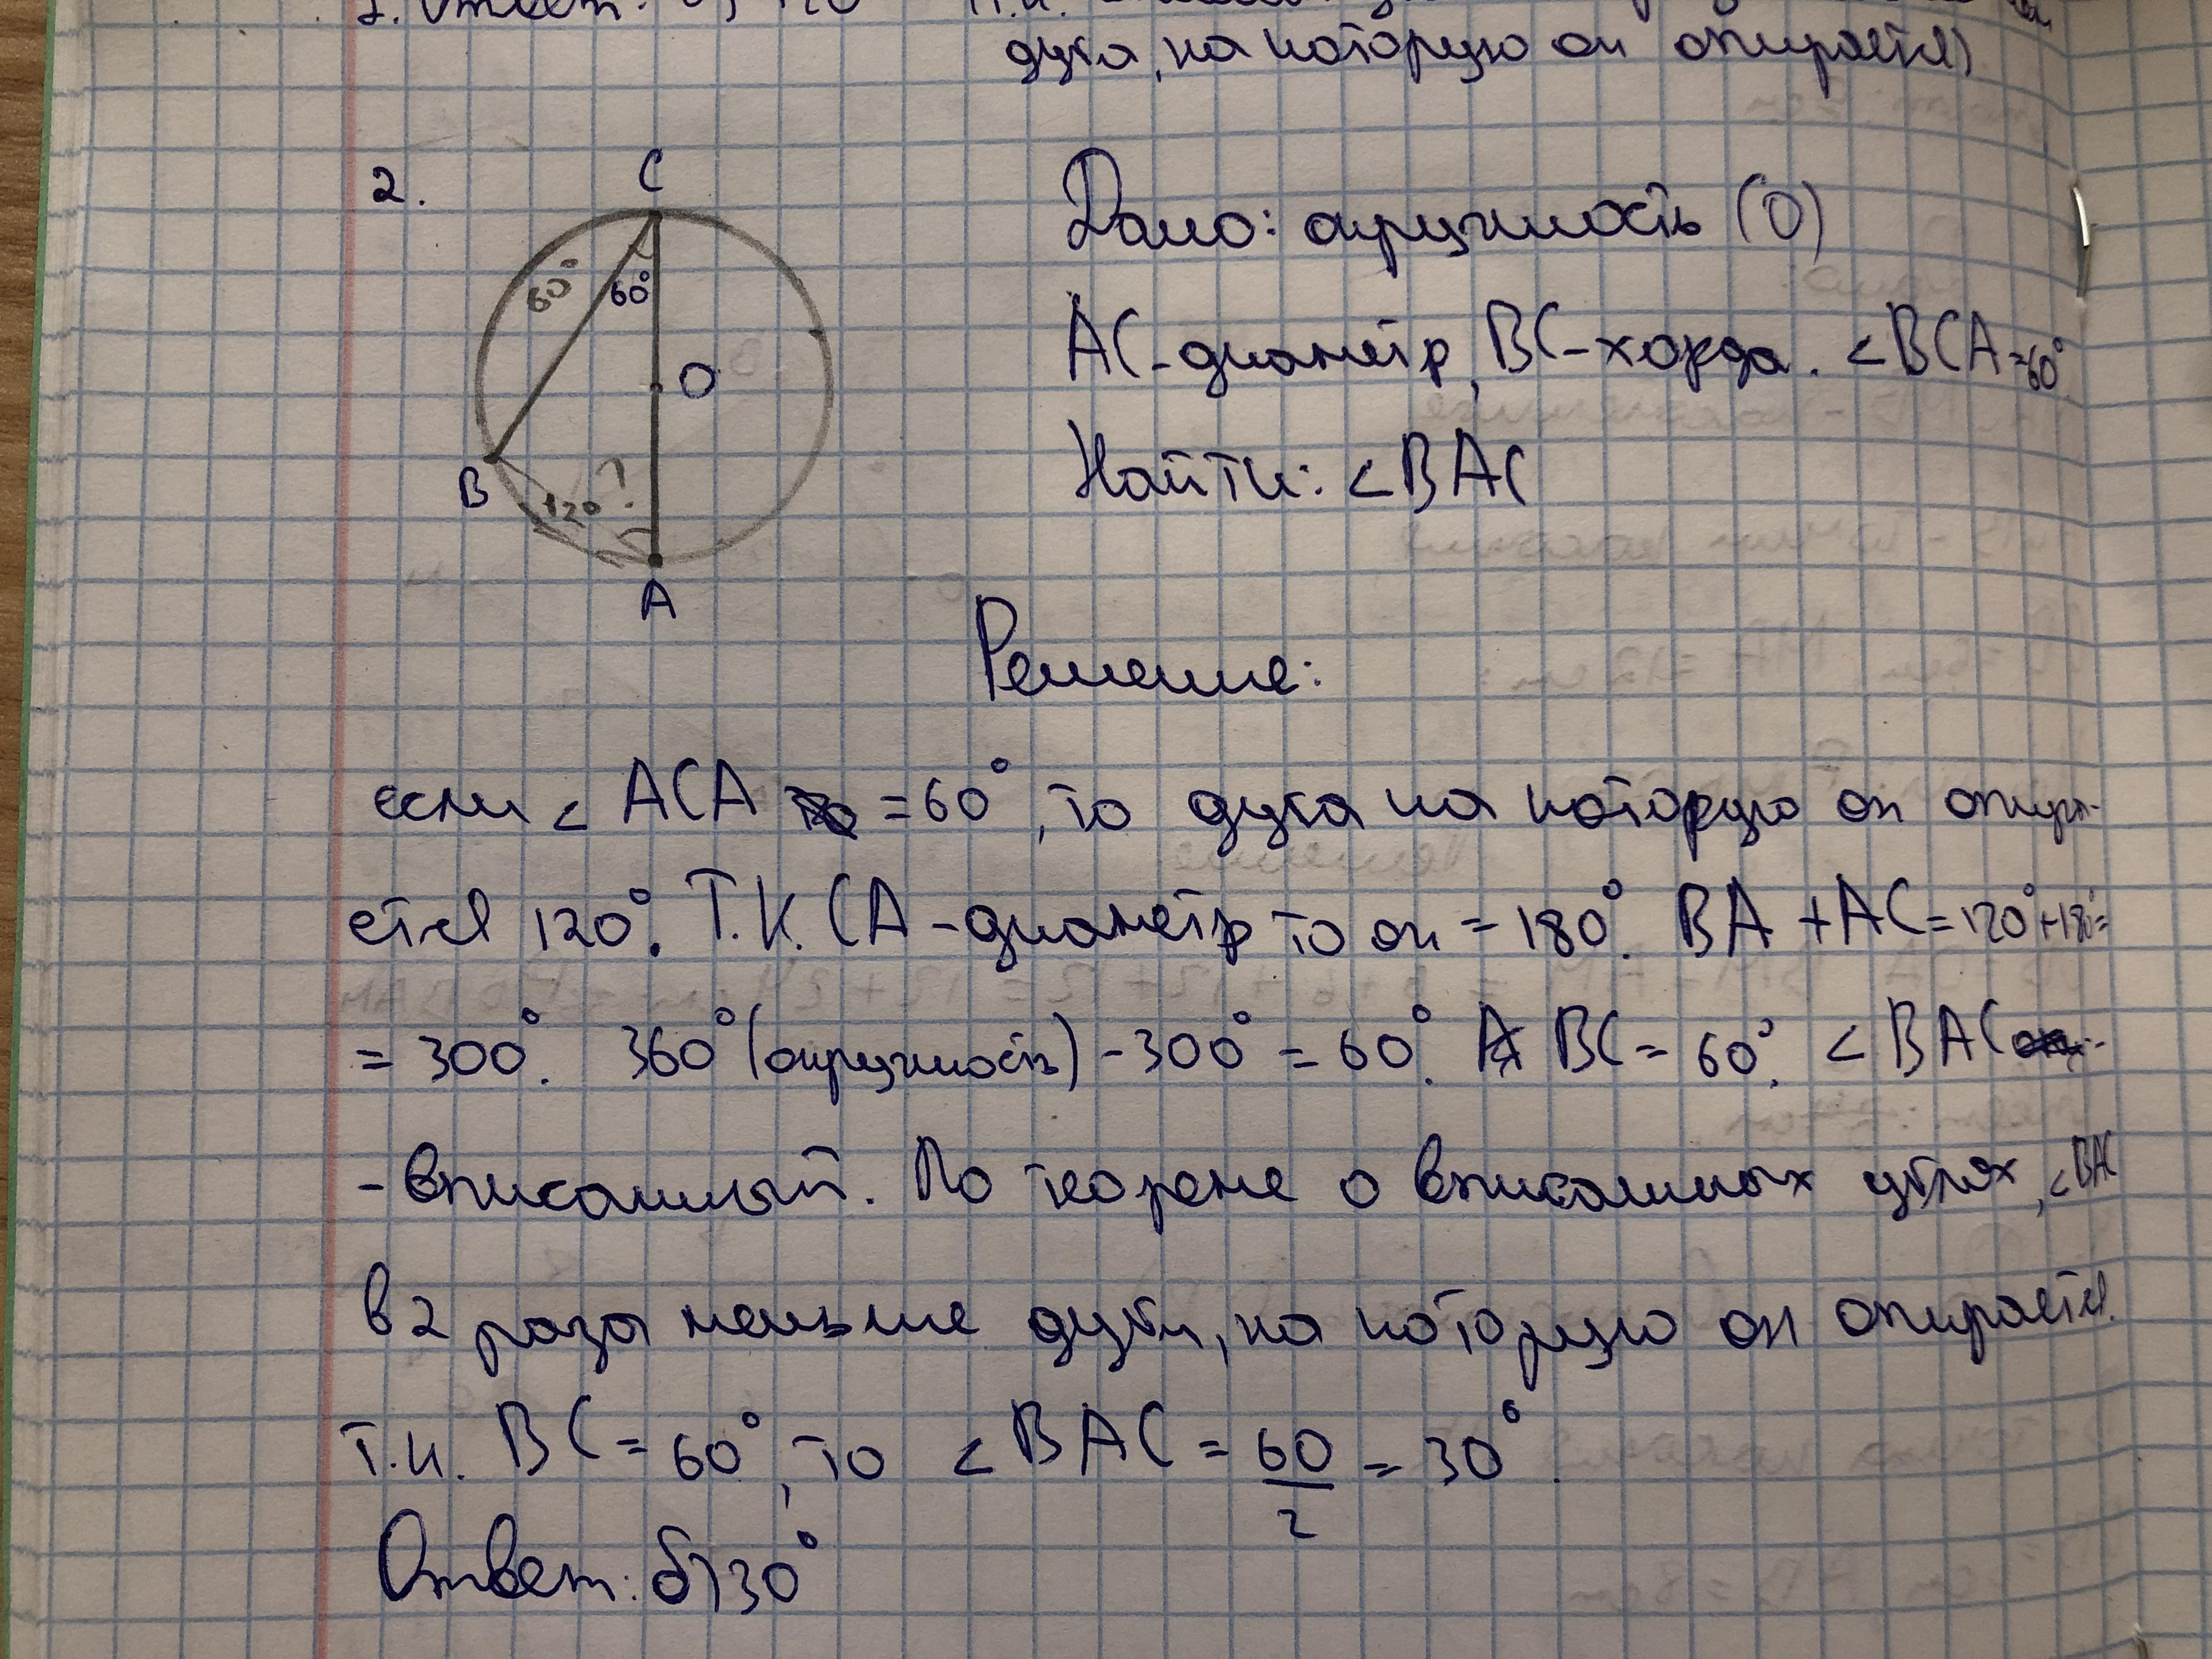 дуга, на которую он опирается)
2.
C
60°
60°
O
B
120
?
A
Дано: окружность (O)
AC-диаметр, BC-хорда. <BCA=60°
Найти: <BAC
Решение:
если < ACA = 60°, то дуга на которую он опира-
ется 120°. Т.К. CA - диаметр то он = 180°. BA + AC = 120°+180°=
= 300°. 360° (окружность) - 300° = 60°. BC = 60°. < BAC -
- вписанный. По теореме о вписанных углах, <BAC
в 2 раза меньше дуги, на которую он опирается.
т.к. BC = 60°, то < BAC = 60/2 = 30°.
Ответ: б) 30°